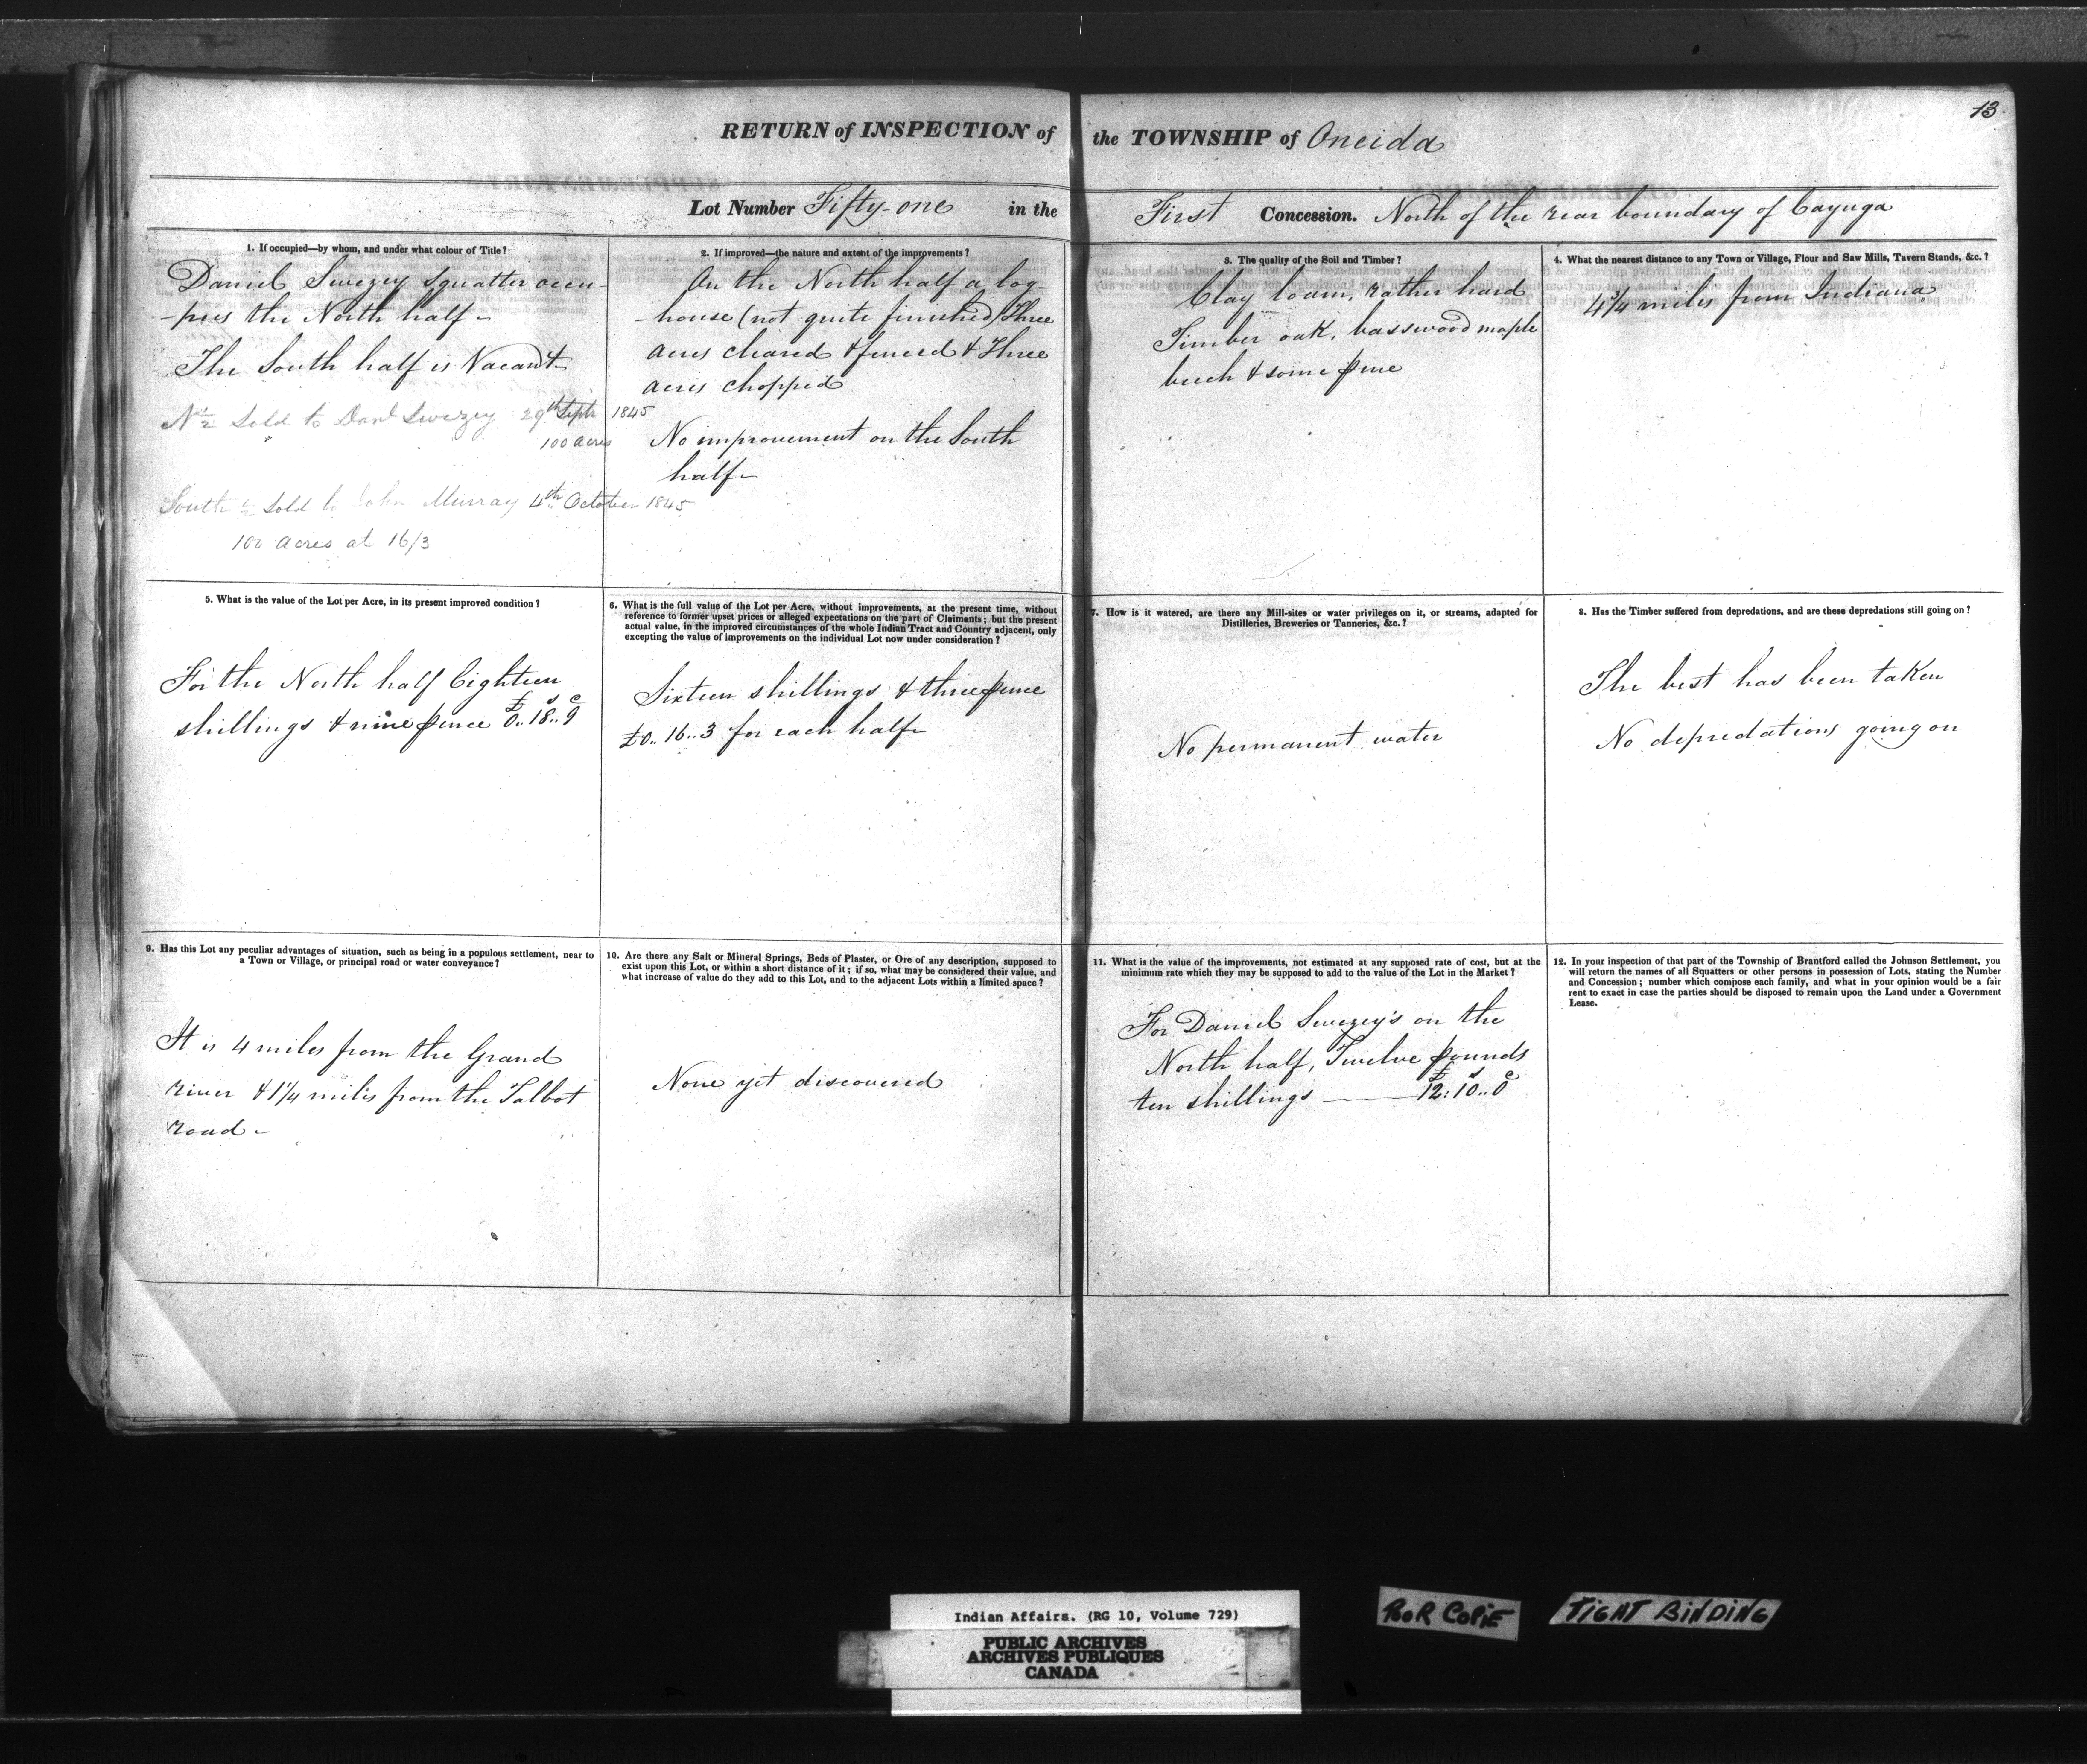 13.
RETURN of INSPECTION of the TOWNSHIP of Oneida
Lot Number Fifty-one in the First Concession. North of the rear boundary of Cayuga
1. If occupied—by whom, and under what colour of Title?
Daniel Swezey squatter occu-
-pies the North half-
The South half is Vacant-
N ½ Sold to Danl Swezey 29th Septr 1845
100 acres
South ½ Sold to John Murray 4th October 1845
100 acres at 16/3
2. If improved—the nature and extent of the improvements?
On the North half a log-
-house (not quite finished) Three
acres cleared & fenced & Three
acres chopped
No improvement on the South
half-
3. The quality of the Soil and Timber?
Clay loam, rather hard
Timber oak, basswood maple
beech & some pine
4. What the nearest distance to any Town or Village, Flour and Saw Mills, Tavern Stands, &c.?
4¾ miles from Indiana
5. What is the value of the Lot per Acre, in its present improved condition?
For the North half Eighteen
shillings & nine pence £0..18..9
6. What is the full value of the Lot per Acre, without improvements, at the present time, without
reference to former upset prices or alleged expectations on the part of Claimants; but the present
actual value, in the improved circumstances of the whole Indian Tract and Country adjacent, only
excepting the value of improvements on the individual Lot now under consideration?
Sixteen shillings & three pence
£0.. 16..3 for each half-
7. How is it watered, are there any Mill-sites or water privileges on it, or streams, adapted for
Distilleries, Breweries or Tanneries, &c.?
No permanent water
8. Has the Timber suffered from depredations, and are these depredations still going on?
The best has been taken
No depredations going on
9. Has this Lot any peculiar advantages of situation, such as being in a populous settlement, near to
a Town or Village, or principal road or water conveyance?
It is 4 miles from the Grand
river & 1¼ miles from the Talbot
road-
10. Are there any Salt or Mineral Springs, Beds of Plaster, or Ore of any description, supposed to
exist upon this Lot, or within a short distance of it; if so, what may be considered their value, and
what increase of value do they add to this Lot, and to the adjacent Lots within a limited space?
None yet discovered
11. What is the value of the improvements, not estimated at any supposed rate of cost, but at the
minimum rate which they may be supposed to add to the value of the Lot in the Market?
For Daniel Swezey's on the
North half, Twelve pounds
ten shillings —— £12:10..0
12. In your inspection of that part of the Township of Brantford called the Johnson Settlement, you
will return the names of all Squatters or other persons in possession of Lots, stating the Number
and Concession; number which compose each family, and what in your opinion would be a fair
rent to exact in case the parties should be disposed to remain upon the Land under a Government
Lease.
Indian Affairs. (RG 10, Volume 729)
PUBLIC ARCHIVES
ARCHIVES PUBLIQUES
CANADA
POOR COPIE
TIGHT BINDING